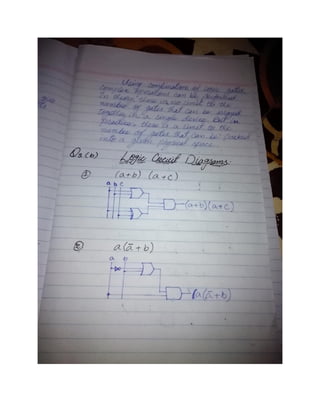 Using combinations of logic gates,
complex operations can be performed.
In theory, there is no limit to the
number of gates that can be
together in a single device. But in
practice, there is a limit to the
number of gates that can be packed
into a given physical space.
Q3 (b) Logic Circuit Diagrams
① (a+b) (a+c)
a b c
(a+b)(a+c)
② a(ā+b)
a b
a(ā+b)